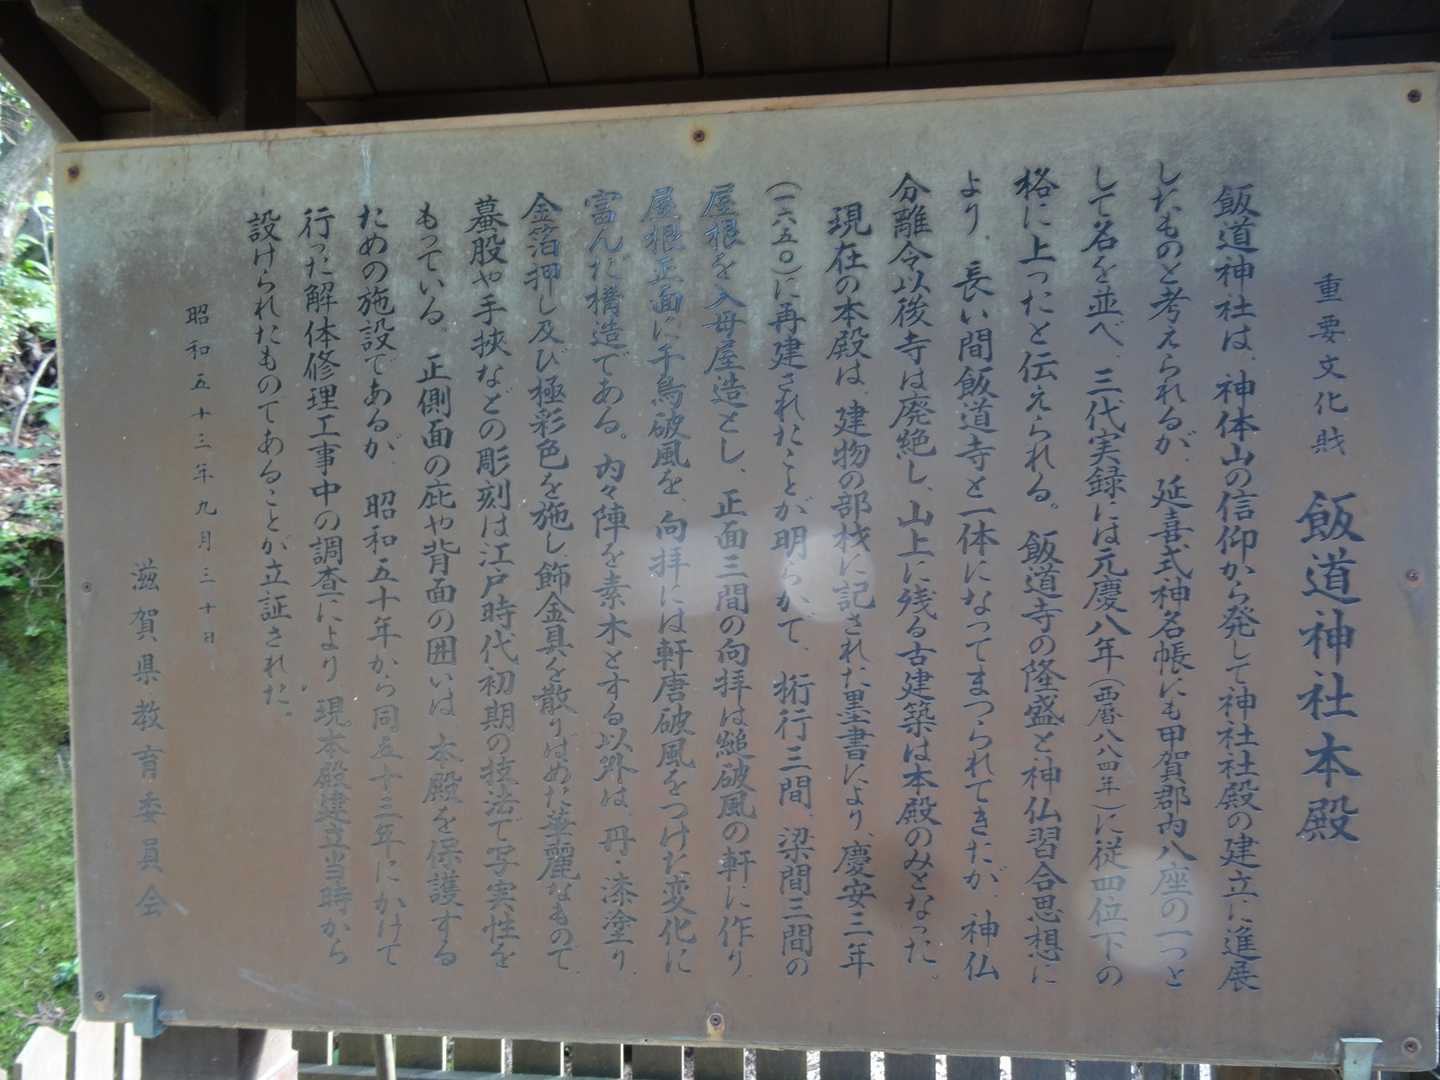 重要文化財 飯道神社本殿
飯道神社は、神体山の信仰から発して神社社殿の建立に進展
したものと考えられるが、延喜式神名帳にも甲賀郡内八座の一つと
して名を並べ、三代実録には元慶八年(西暦八八四年)に従四位下の
格に上ったと伝えられる。飯道寺の隆盛と神仏習合思想に
より、長い間飯道寺と一体になってまつられてきたが、神仏
分離令以後寺は廃絶し、山上に残る古建築は本殿のみとなった。
現在の本殿は、建物の部材に記された墨書により、慶安三年
(一六五〇)に再建されたことが明らかで、桁行三間、梁間三間の
屋根を入母屋造とし、正面三間の向拝は縋破風の軒に作り、
屋根正面に千鳥破風を、向拝には軒唐破風をつけた変化に
富んだ構造である。内々陣を素木とする以外は、丹・漆塗り、
金箔押し及び極彩色を施し、飾金具を散りばめた華麗なもので、
蟇股や手挟などの彫刻は江戸時代初期の技法で写実性を
もっている。正側面の庇や背面の囲いは、本殿を保護する
ための施設であるが、昭和五十年から同五十三年にかけて
行った解体修理工事中の調査により、現本殿建立当時から
設けられたものてあることが立証された。
昭和五十三年九月三十日
滋賀県教育委員会